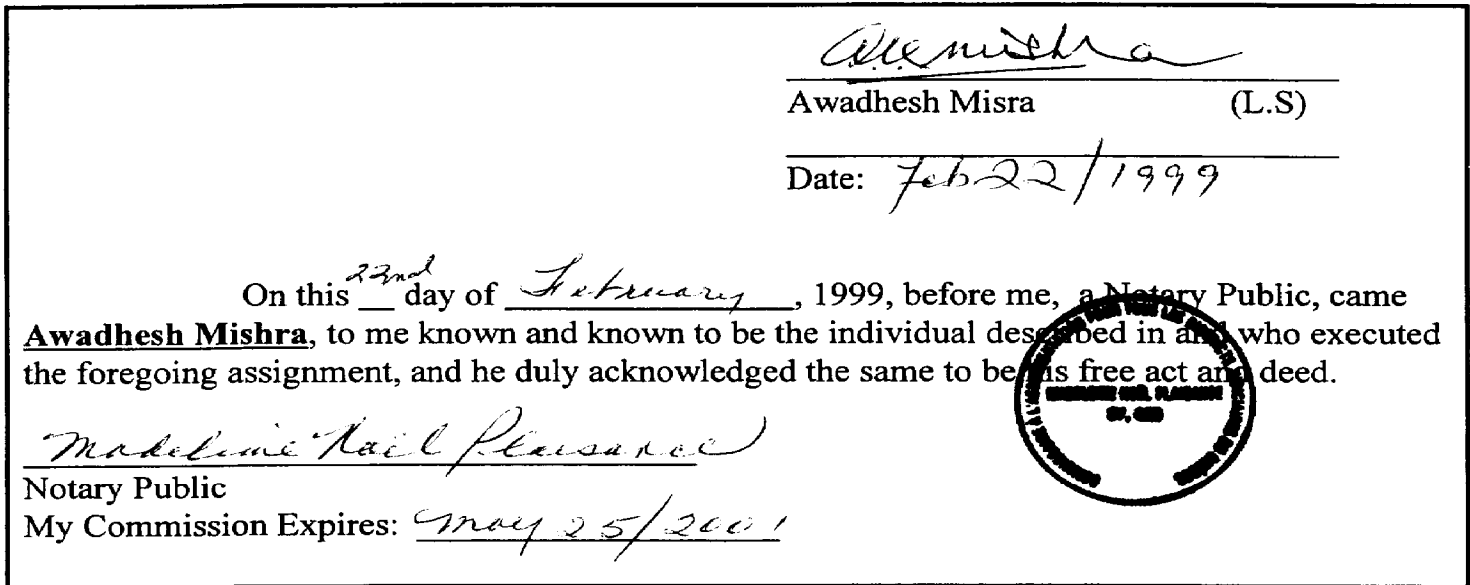 Awadhesh Misra (L.S)
Date: Feb 22/1999
On this 22nd day of February, 1999, before me, a Notary Public, came
Awadhesh Mishra, to me known and known to be the individual described in and who executed
the foregoing assignment, and he duly acknowledged the same to be his free act and deed.
Madeleine Noël Plaisance
Notary Public
My Commission Expires: May 25/2001